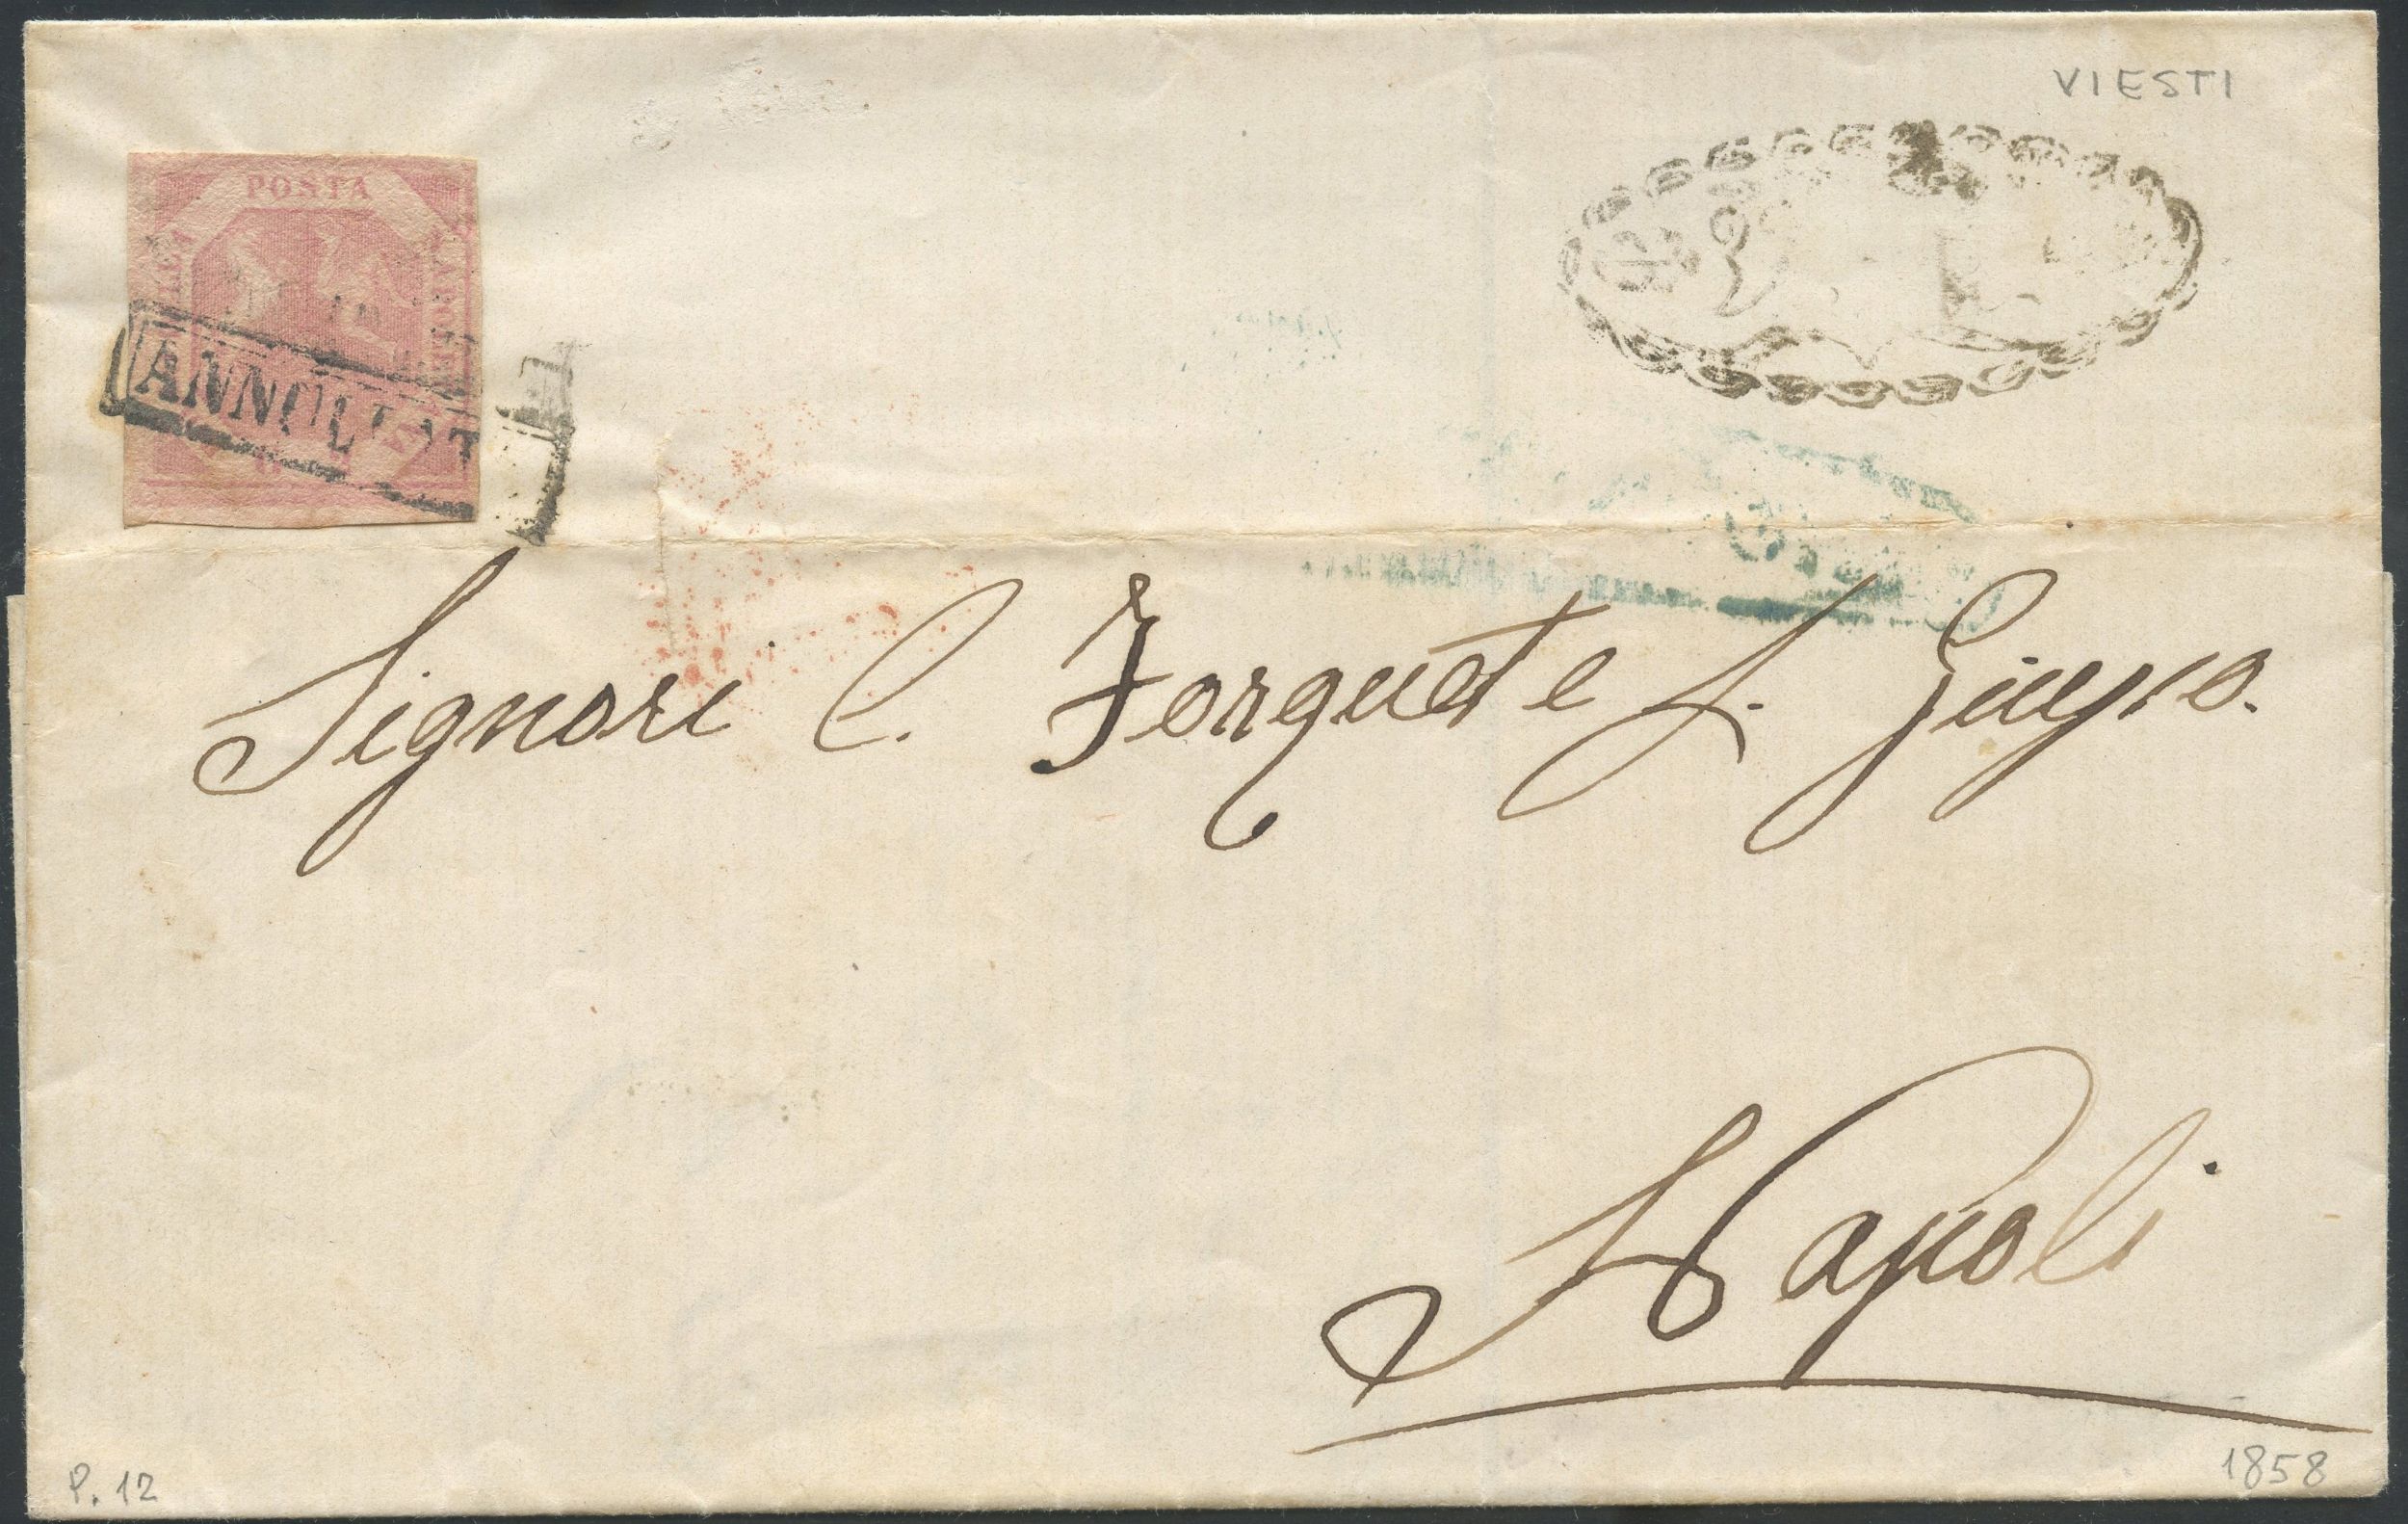 VIESTI
POSTA
NAPOLETANA
ANNULLATO
Signori C. Forquet e L. Giusso.
Napoli
P. 12
1858